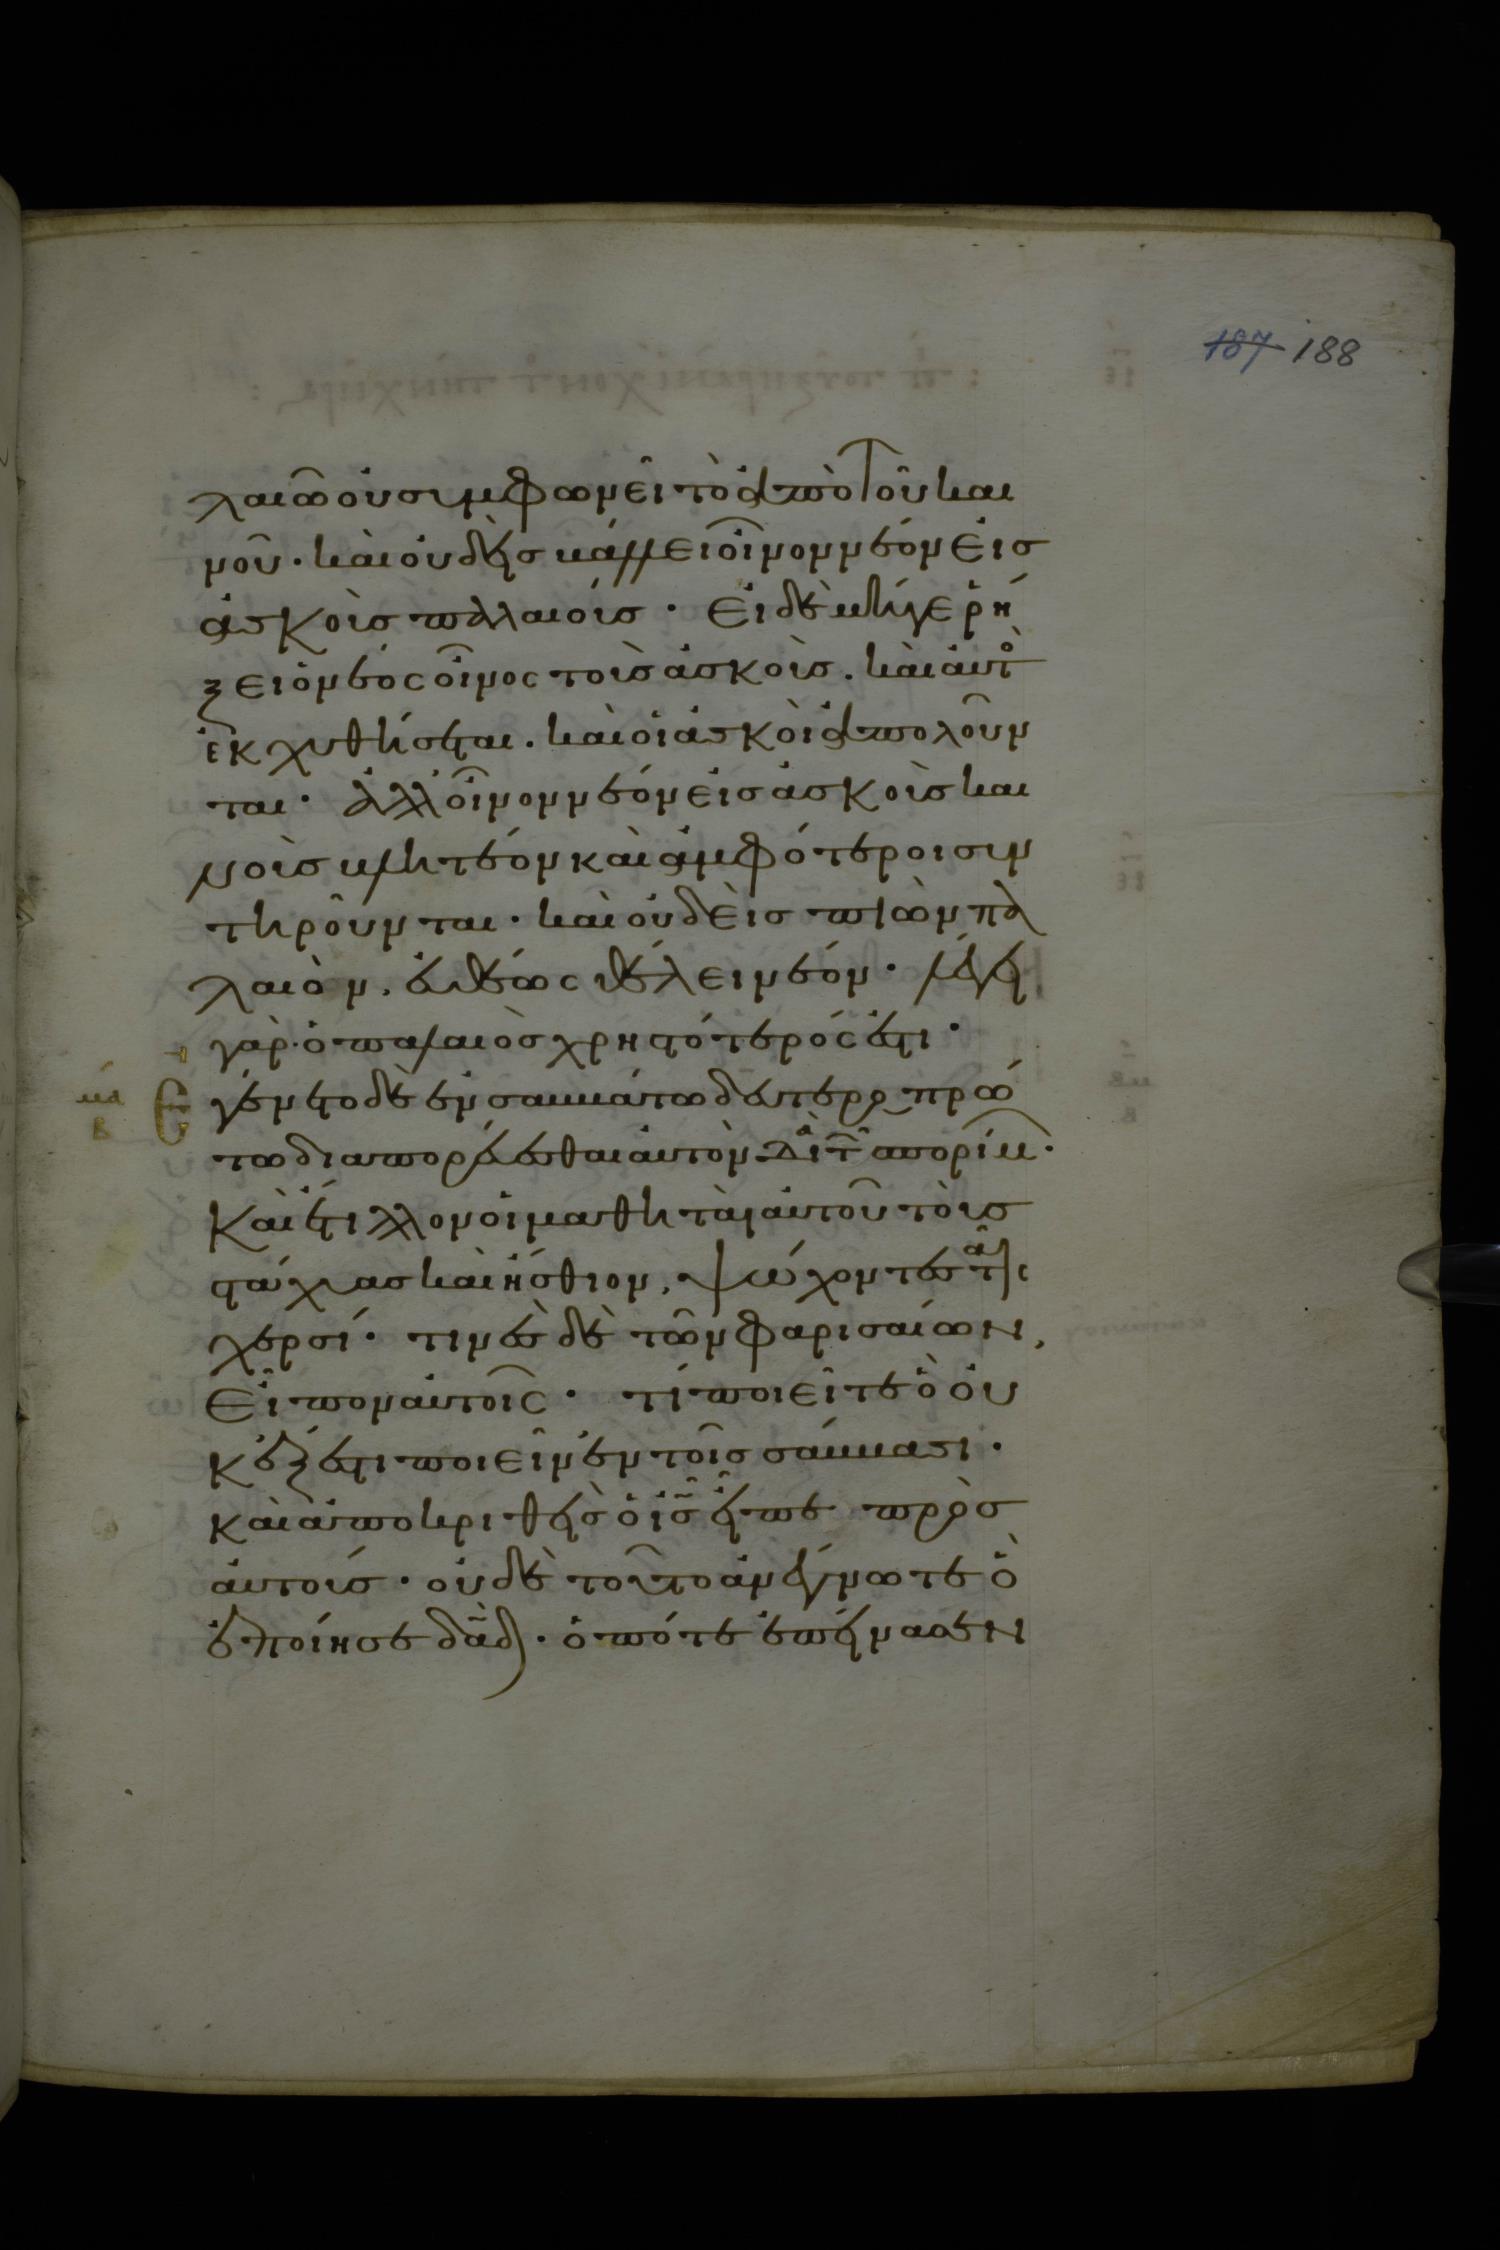 187 188
λαιῶ οὐ συμφωνεῖ τὸ ἀπὸ τοῦ και
νοῦ · καὶ οὐδεὶς βάλλει οἶνον νέον εἰς
ἀσκοὺς παλαιούς · εἰ δὲ μήγε ῥή
ξει ὁ νέος οἶνος τοὺς ἀσκοὺς . καὶ αὐτὸ
ἐκχυθήσεται . καὶ οἱ ἀσκοὶ ἀπολοῦν
ται · ἀλλ οἶνον νέον εἰς ἀσκοὺς και
νοὺς βλητέον καὶ ἀμφότεροι συν
τηροῦνται · καὶ οὐδεὶς πιὼν πα
λαιὸν , εὐθέως θέλει νέον · λέγει
γὰρ · ὁ παλαιὸς χρηστότερός ἐστι ·
γένετο δὲ ἐν σαββάτω δευτερο πρώ
τω διαπορεύεσθαι αὐτὸν διὰ τῶν σπορίμων ·
Καὶ ἔτιλλον οἱ μαθηταὶ αὐτοῦ τοὺς
στάχυας καὶ ἤσθιον , ψώχοντες ταῖς
χερσί · τινὲς δὲ τῶν φαρισαίων ,
Εἶπον αὐτοῖς · τί ποιεῖτε ὃ οὐ
κ ἔξεστι ποιεῖν ἐν τοῖς σάββασι ·
Καὶ ἀποκριθεὶς ὁ ις εἶπε πρὸς
αὐτούς · οὐδὲ τοῦτο ἀνέγνωτε ὃ
ἐποίησε δαδ · ὁπότε ἐπείνασεν